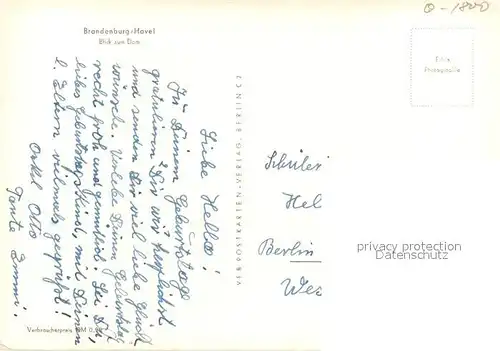 Q-1800
Brandenburg/Havel
Blick zum Dom
Liebe Hella!
Zu Deinem Geburtstage
gratulieren Dir wir herzlichst
und senden Dir viel liebe Glück
wünsche. Verlebe Deinen Geburtstag
recht froh und gemütlich. Sei Du,
liebes Geburtstagskind, mit Deinen
l. Eltern vielmals gegrüßt!
Onkel Otto
Tante Emmi.
Verbraucherpreis DM 0,
VEB POSTKARTEN-VERLAG · BERLIN
Schüler
Hel
Berlin
Wes
privacy protection
Datenschutz